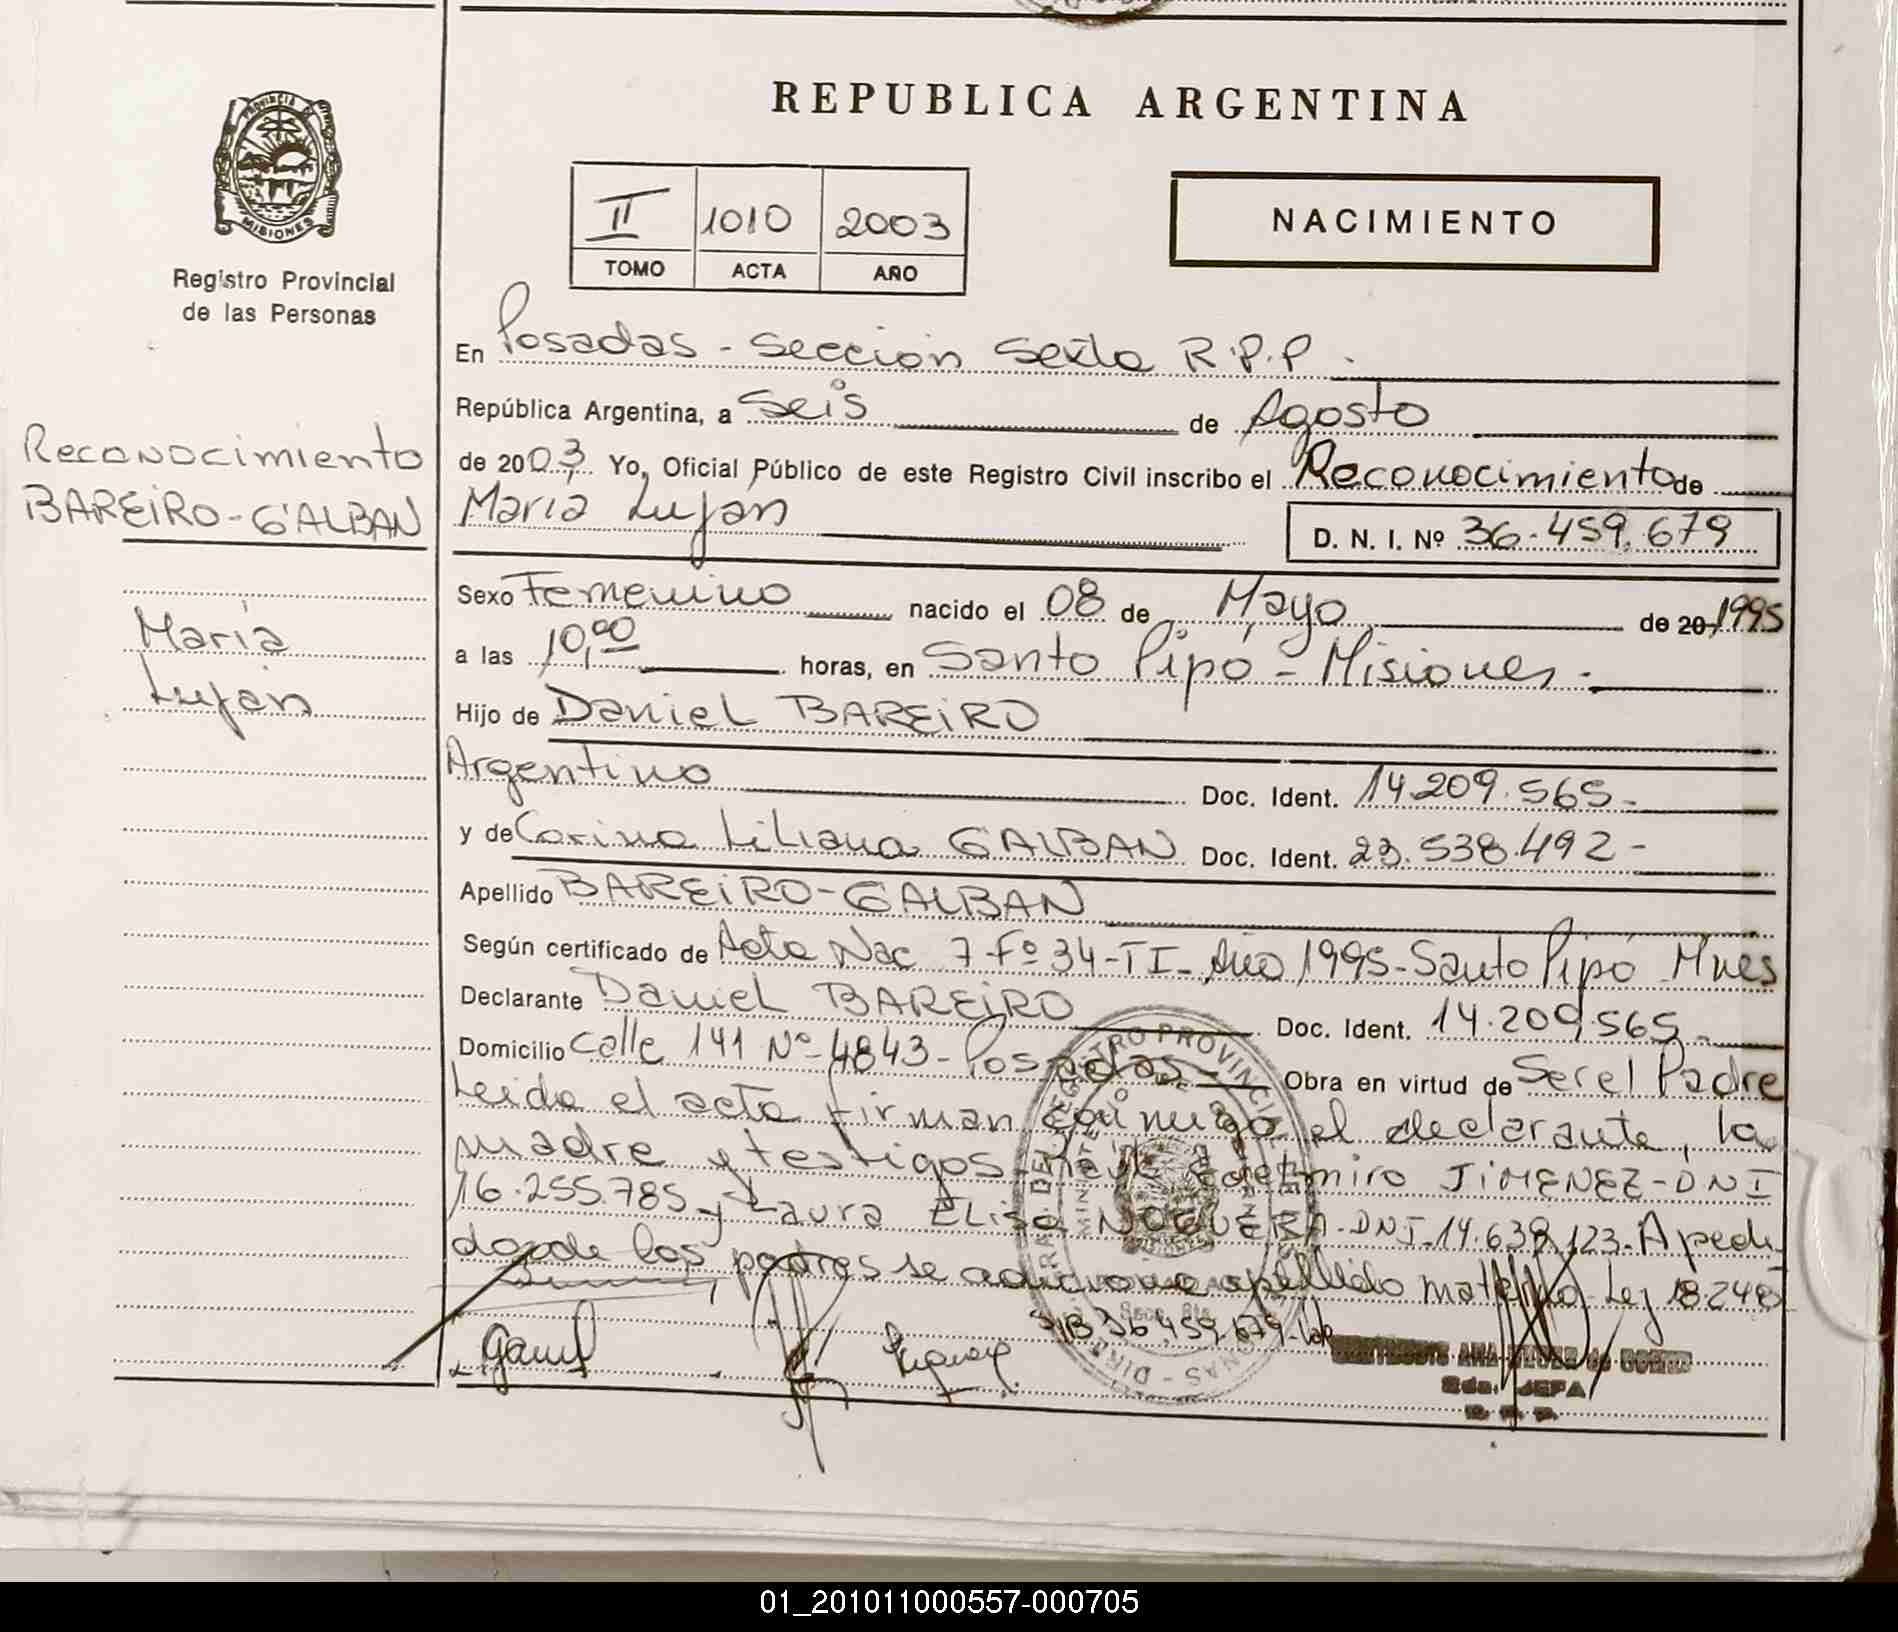 REPUBLICA ARGENTINA
PROVINCIA
MISIONES
Registro Provincial
de las Personas
II 1010 2003
TOMO ACTA AÑO
NACIMIENTO
En Posadas - Sección Sexta R.P.P.
República Argentina, a Seis de Agosto
de 2003 Yo, Oficial Público de este Registro Civil inscribo el Reconocimiento de
María Luján D. N. I. Nº 36.459.679
Reconocimiento
BAREIRO-GALBAN
María
Luján
Sexo Femenino nacido el 08 de Mayo de 20 1995
a las 10,00 horas, en Santo Pipó - Misiones.
Hijo de Daniel BAREIRO
Argentino Doc. Ident. 14.209.565.
y de Corina Liliana GALBAN Doc. Ident. 23.538.492-
Apellido BAREIRO-GALBAN
Según certificado de Acta Nac 7-Fº34-TI-Año 1995-Santo Pipó Mnes
Declarante Daniel BAREIRO Doc. Ident. 14.209.565.
Domicilio Calle 141 Nº 4843-Posadas- Obra en virtud de Ser el Padre
Leída el acta firman conmigo el declarante, la
madre y testigos Edelmiro JIMENEZ-DNI
16.255.785 y Laura Elisa NOGUERA-DNI-14.639.123. A pedi
do de los padres se adiciona apellido materno Ley 18248
36.459.679
2da. JEFA
R. P. P.
01_201011000557-000705